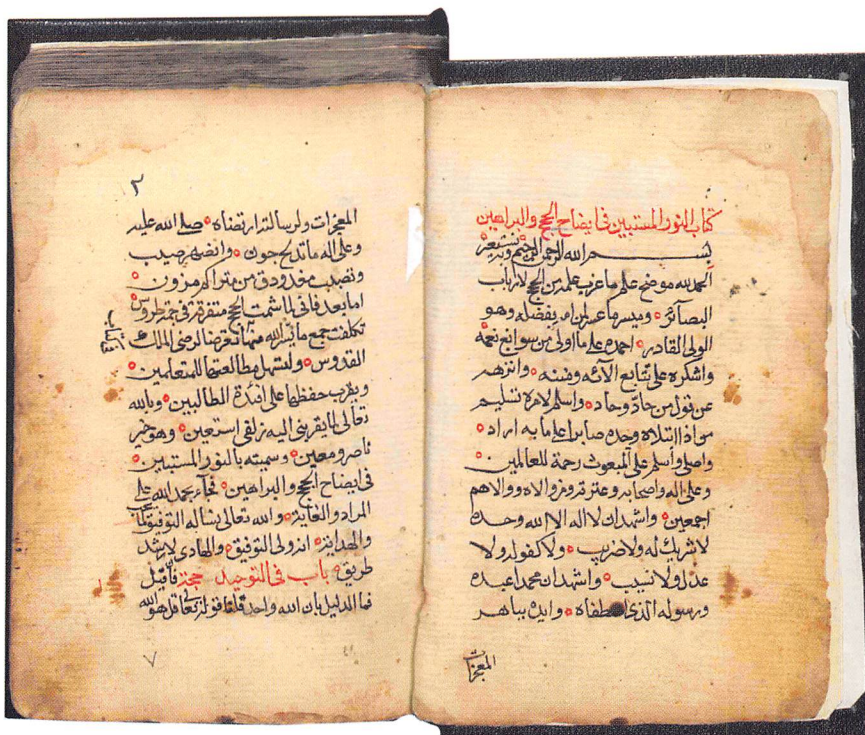 كتاب النور المستبين في ايضاح الحجج والبراهين
بسم الله الرحمن الرحيم وبه نستعين
الحمد لله موضح علم ما عزب علمه من الحجج لارباب
البصائر وميسر ما عسر من امره بفضله وهو
الولي القادر احمده على ما اولى من سوابغ نعمه
واشكره على تتابع الائه ومننه وانزهه
عن قول من حاد وحاد واسلم لامره تسليم
مواد ابتلاه وحده صابرا على ما به اراد
واصلي واسلم على المبعوث رحمة للعالمين
وعلى اله واصحابه وعترته ومن والاه ووالاهم
اجمعين واشهد ان لا اله الا الله وحده
لا شريك له ولا ضريب ولا كفو له ولا
عدل ولا نسيب واشهد ان محمدا عبده
ورسوله الذي اصطفاه وايده بباهر
المعجزات
٢
المعجزات ولرسالته ارتضاه صلى الله عليه
وعلى اله ما تدلج جون وانضهر صيب
ونصبب مغدودق من متراكم مزون
اما بعد فاني لما شمت الحجج متفرقة في جم طروس
تكلفت جمع ما يسر الله منها تعرضا لرضى الملك
القدوس ولتسهل مطالعتها للمتعلمين
ويقرب حفظها على افئدة الطالبين وبالله
تعالى لما يقربني اليه زلفى استعين وهو خير
ناصر ومعين وسميته بالنور المستبين
في ايضاح الحجج والبراهين فجاء بحمد الله على
المراد والغاية والله تعالى نساله التوفيق لما يحب
والهداية انه ولي التوفيق والهادي لارشد
طريق باب في التوحيد حجة فان قيل
فما الدليل بان الله واحد قلنا قوله تعالى قل هو الله
٧